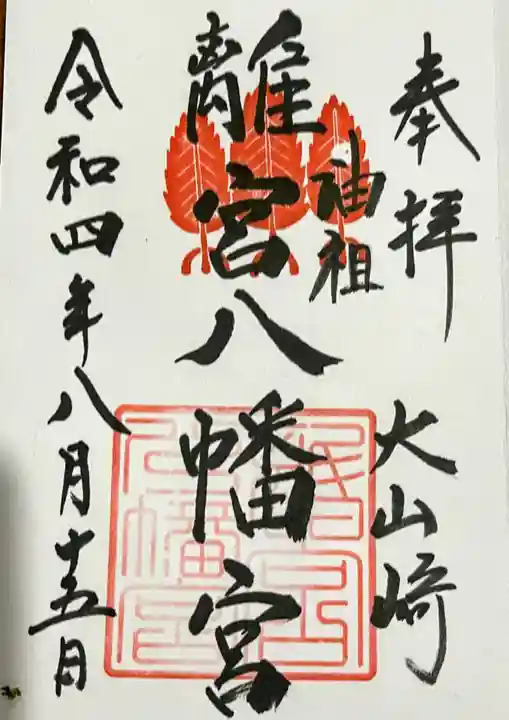 奉拝
大山崎
油祖
離宮八幡宮
令和四年八月十五日